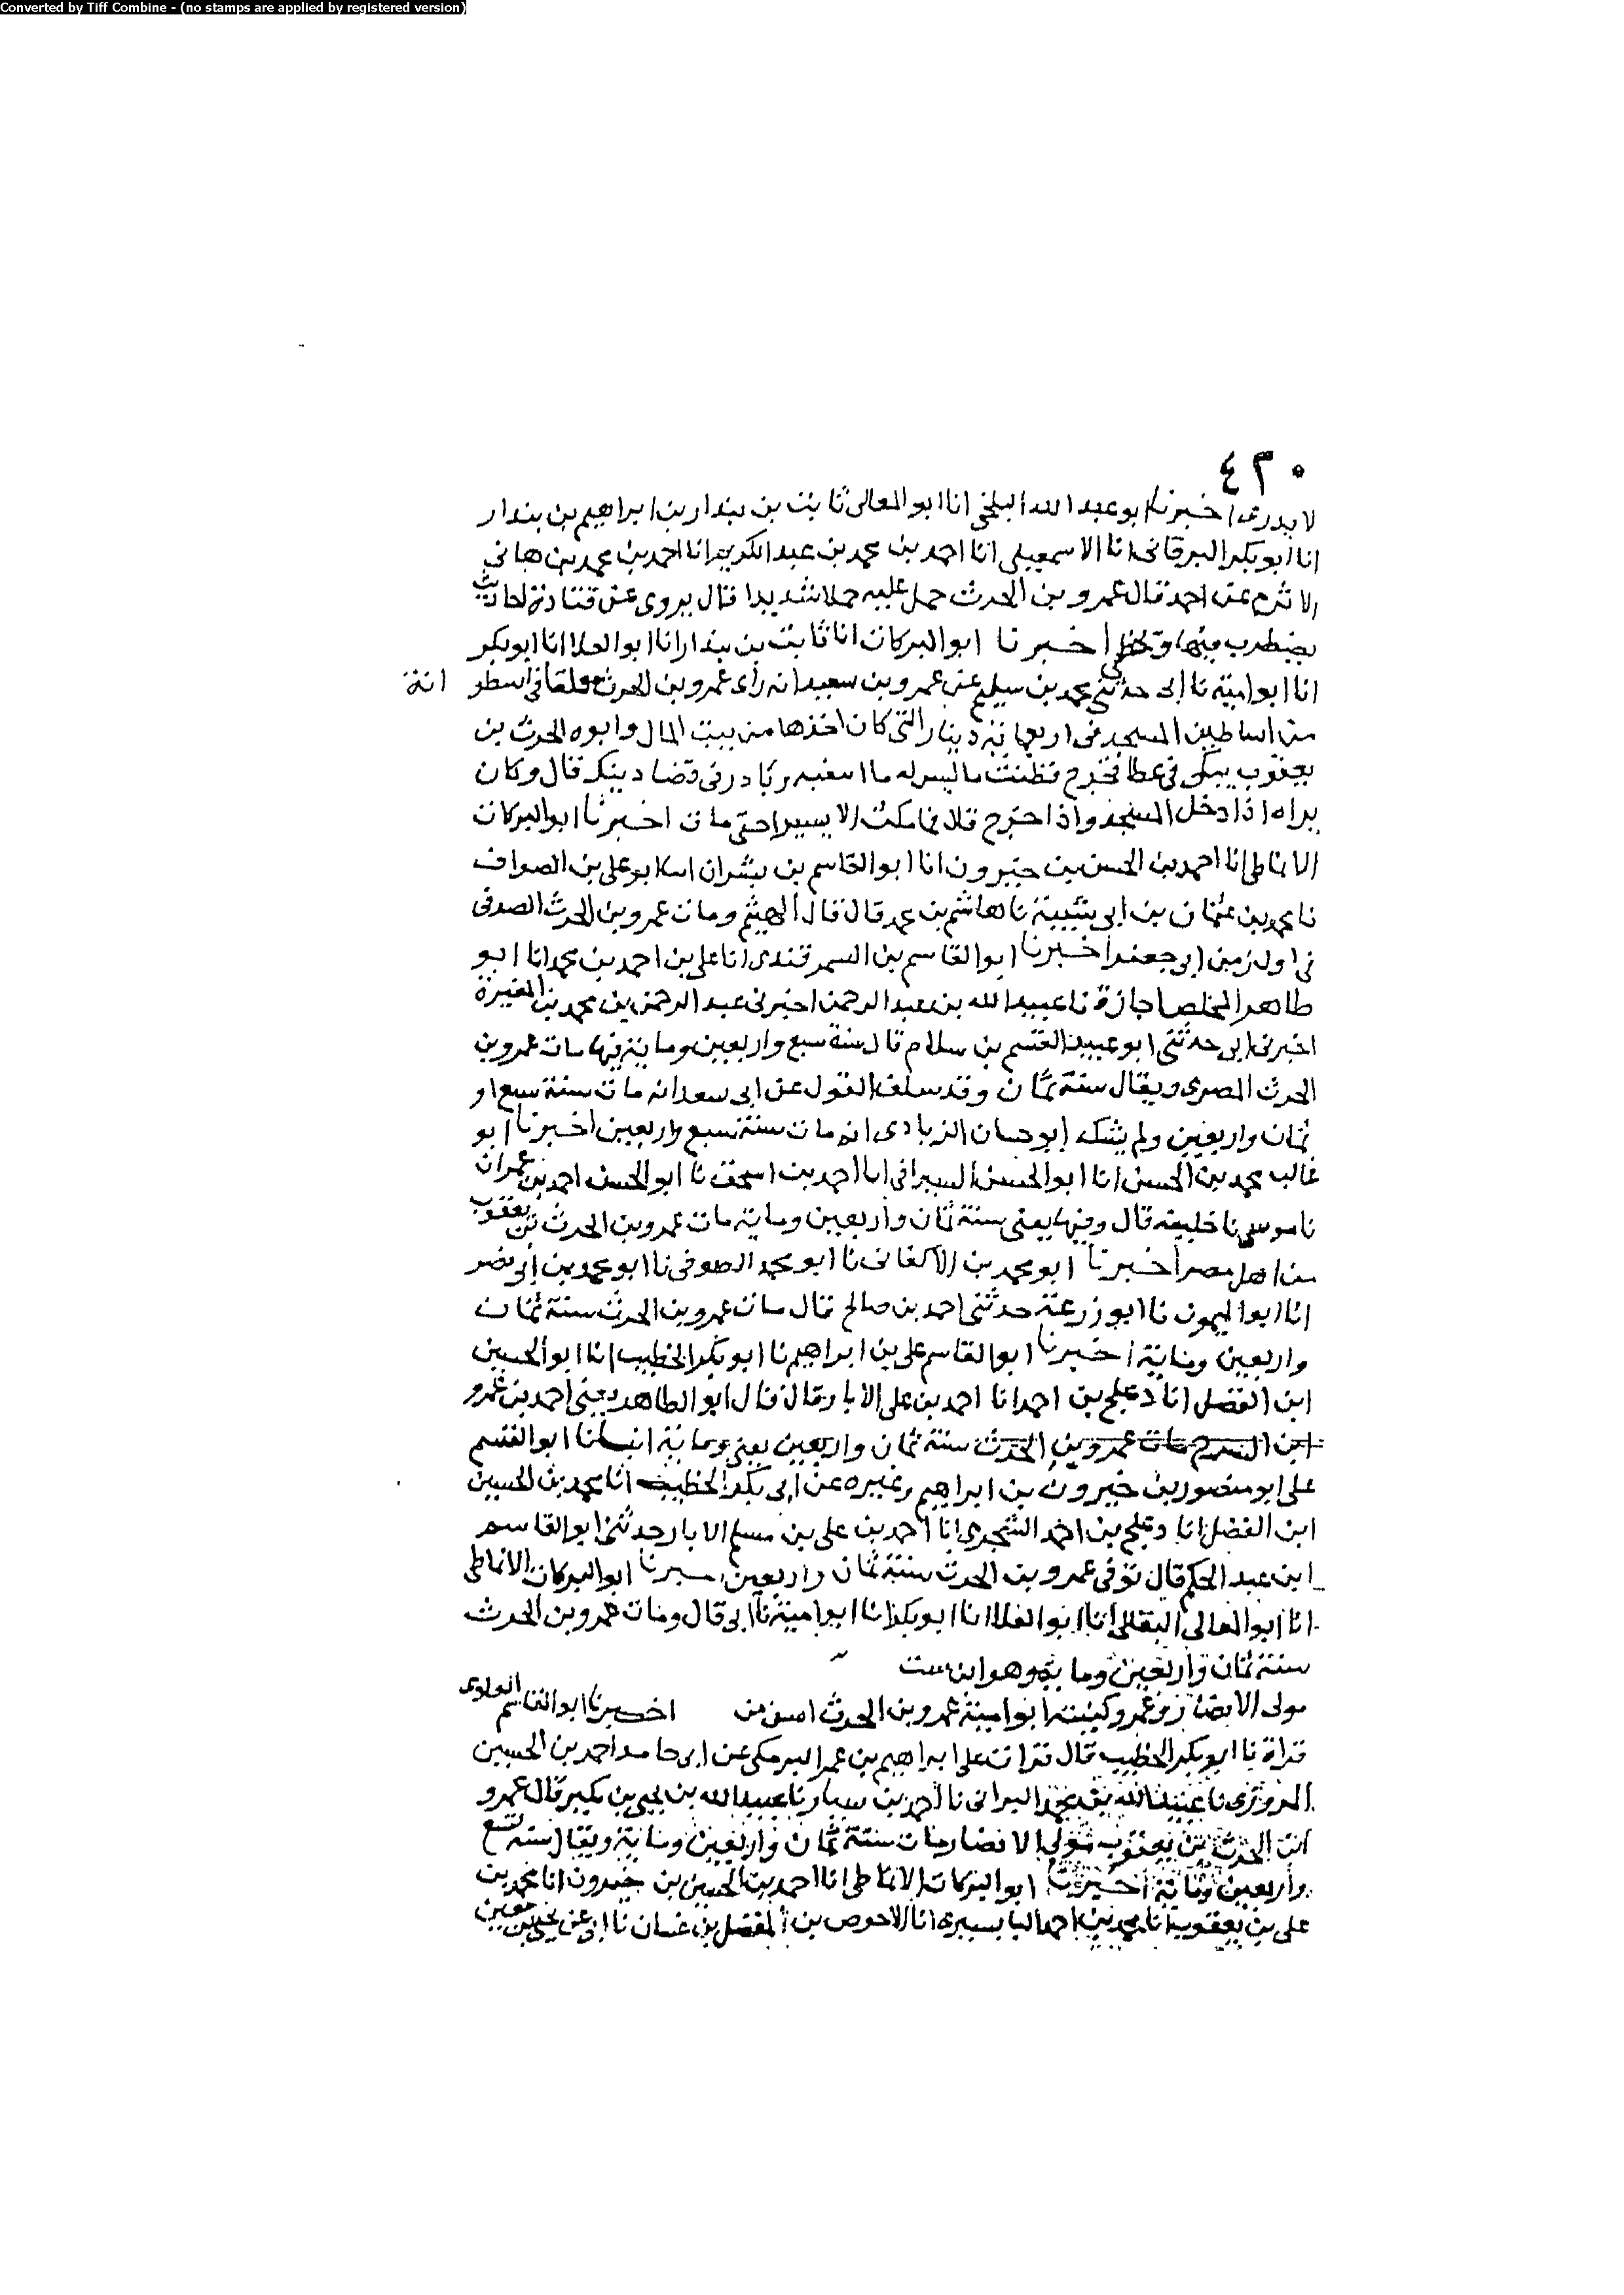 Converted by Tiff Combine - (no stamps are applied by registered version)
٤٣٠
لا يدرى اخبرنا ابو عبد الله البلخى انا ابو المعالى ثابت بن بندار بن ابراهيم بن بندار
انا ابو بكر البرقانى انا الاسمعيلى انا احمد بن محمد بن عبد الكريم انا احمد بن محمد بن هانى
الاثرم عن احمد قال عمرو بن الحرث حمل عليه حملا شديدا قال يروى عن قتادة احاديث
يضطرب فيها ويخطى اخبرنا ابو البركات انا ثابت بن بندار انا ابو العلا انا ابو بكر
انا ابو امية نا ابى حدثنى محمد بن عن عمرو بن سعيد انه رأى عمرو بن الحرث فى اسطو انة
من اساطين المسجد فى اربعماية دينار التى كان اخذها من بيت المال وابوه الحرث بن
يعقوب يبكى قضا دينك قال وكان
يراه اذا دخل المسجد واذا خرج قال فما مكث الا يسيرا حتى مات اخبرنا ابو البركات
الانماطى انا احمد بن الحسن بن خيرون انا ابو القاسم بن بشران انا ابو على بن الصواف
نا محمد بن عثمان بن ابى شيبة نا هاشم بن محمد قال قال الهيثم ومات عمرو بن الحرث الصدفى
فى اول زمن ابى جعفر اخبرنا ابو القاسم بن السمرقندى انا على بن احمد بن محمد انا ابو
طاهر المخلص اجازة نا عبيد الله بن عبد الرحمن اخبرنى عبد الرحمن بن محمد بن المغيرة
اخبرنى ابى حدثنى ابو عبيد القسم بن سلام قال سنة سبع واربعين وماية فيها مات عمرو بن
الحرث المصرى ويقال سنة ثمان وقد سلف القول عن ابى سعد انه مات سنة سبع او
ثمان واربعين ولم يشك ابو حسان الزيادى انه مات سنة سبع واربعين اخبرنا ابو
غالب محمد بن الحسن انا ابو الحسن السيرافى انا احمد بن اسحق نا ابو الحسن احمد بن عمران
نا موسى نا خليفة قال وفيها يعنى سنة ثمان واربعين وماية مات عمرو بن الحرث بن يعقوب
من اهل مصر اخبرنا ابو محمد بن الاكفانى نا ابو محمد الصوفى نا ابو محمد بن ابى نصر
انا ابو الميمون نا ابو زرعة حدثنى احمد بن صالح قال مات عمرو بن الحرث سنة ثمان
واربعين وماية اخبرنا ابو القاسم على بن ابراهيم نا ابو بكر الخطيب انا ابو الحسين
ابن الفضل انا دعلج بن احمد انا احمد بن على الابار قال قال ابو الطاهر يعنى احمد بن عمرو
ابن السرح مات عمرو بن الحرث سنة ثمان واربعين يعنى وماية انبانا ابو القسم
على ابو منصور بن خيرون بن ابراهيم وغيره عن ابى بكر الخطيب انا محمد بن الحسين
ابن الفضل انا دعلج بن احمد السجزى انا احمد بن على بن مسلم الابار حدثنى ابو القاسم
ابن عبد الحكم قال توفى عمرو بن الحرث سنة ثمان واربعين اخبرنا ابو البركات الانماطى
انا ابو المعالى البقال انا ابو العلا انا ابو بكر انا ابو امية نا ابى قال ومات عمرو بن الحرث
سنة ثمان واربعين وماية وهو ابن ست
مولى الانصار عمرو كنيته ابو امية عمرو بن الحرث اسن من اخبرنا ابو القاسم
قراة نا ابو بكر الخطيب قال قرات على ابراهيم بن عمر البرمكى عن ابى حامد احمد بن الحسين
المروزى نا نا احمد بن سيار نا عبيد الله بن يحيى بن بكير قال عمرو
ابن الحرث بن يعقوب مولى الانصار مات سنة ثمان واربعين وماية ويقال سنة تسع
واربعين وماية اخبرنا ابو البركات الانماطى انا احمد بن الحسن بن خيرون انا محمد بن
على بن يعقوب انا محمد بن احمد البابسيرى انا الاحوص بن المفضل بن غسان نا ابى عن يحيى بن معين